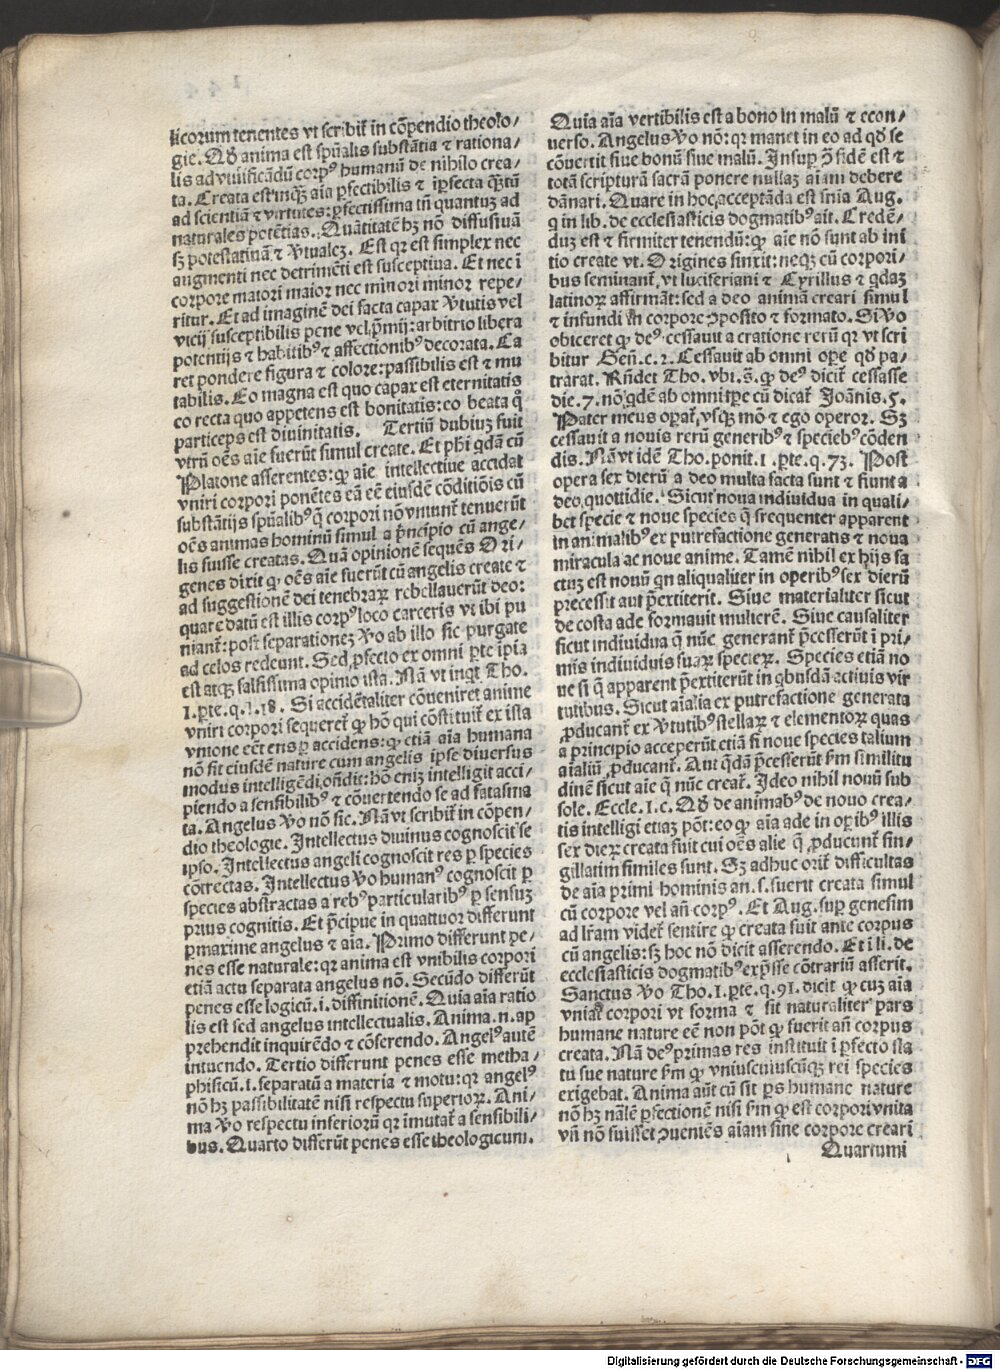 licorum tenentes vt scribit̃ in cõpendio theolo/
gie. Qđ anima est spũalis substãtia ⁊ rationa/
lis ad viuificãdũ corpꝰ humanũ de nihilo crea/
ta. Creata est inqꝫ aĩa ꝑfectibilis ⁊ iꝑfecta q̃tũ
ad scientiã ⁊ virtutes: ꝑfectissima tñ quantuꝫ ad
naturales potẽtias. Quãtitatẽ hꝫ nõ diffusiuã
sꝫ potestatiuã ⁊ ꝟtualeꝫ. Est qꝛ est simplex nec
augmenti nec detrimẽti est susceptiua. Et nec ĩ
corpore maiori maior nec minori minor repe/
ritur. Et ad imaginẽ dei facta capax ꝟtutis vel
vicij susceptibilis pene vel p̃mij: arbitrio libera
potentijs ⁊ habitibꝰ ⁊ affectionibꝰ decorata. Ca
ret pondere figura ⁊ colore: passibilis est ⁊ mu
tabilis. Eo magna est quo capax est eternitatis
eo recta quo appetens est bonitatis: eo beata q̊
particeps est diuinitatis. Tertiũ dubiuꝫ fuit
vtrũ oẽs aĩe fuerũt simul create. Et phi qdã cũ
Platone asserentes: ꝙ aĩe intellectiue accidat
vniri corpori ponẽtes eã eẽ eiusdẽ cõditiõis cũ
substãtijs spũalibꝰ q̃ corpori nõ vniunt̃ tenuerũt
oẽs animas hominũ simul a p̃ncipio cũ ange/
lis fuisse creatas. Quã opinionẽ sequẽs Ori/
genes dixit ꝙ oẽs aĩe fuerũt cũ angelis create ⁊
ad suggestionẽ dei tenebraꝝ rebellauerũt deo:
quare datũ est illis corpꝰ loco carceris vt ibi pu
niant̃: post separationeꝫ ꝟo ab illo sic purgate
ad celos redeunt. Sed ꝓfecto ex omni ꝑte ip̃ia
est atqꝫ falsissima opinio ista. Nã vt inqt Tho.
1.ꝑte.q.1.18. Si accidẽtaliter cõueniret anime
vniri corpori sequeret̃ ꝙ hõ qui cõstituit̃ ex ista
vnione eẽt ens ꝑ accidens: ꝙ etiã aĩa humana
nõ sit eiusdẽ nature cum angelis ipse diuersus
modus intelligẽdi oñdit: hõ eniꝫ intelligit acci/
piendo a sensibilibꝰ ⁊ cõuertendo se ad fatasma
ta. Angelus ꝟo nõ sic. Nã vt scribit̃ in cõpen/
dio theologie. Intellectus diuinus cognoscit se
ipso. Intellectus angeli cognoscit res ꝑ species
cõcreatas. Intellectus ꝟo humanꝰ cognoscit ꝑ
species abstractas a rebꝰ particularibꝰ ꝑ sensuꝫ
prius cognitis. Et p̃cipue in quattuor differunt
ꝑmaxime angelus ⁊ aĩa. Primo differunt pe/
nes esse naturale: qꝛ anima est vnibilis corpori
etiã actu separata angelus nõ. Secũdo differũt
penes esse logicũ.i. diffinitionẽ. Quia aĩa ratio
lis est sed angelus intellectualis. Anima.n. ap
prehendit inquirẽdo ⁊ cõferendo. Angelꝰ autẽ
intuendo. Tertio differunt penes esse metha/
phisicũ.i. separatũ a materia ⁊ motu: qꝛ angelꝰ
nõ hꝫ passibilitatẽ nisi respectu superioꝝ. Ani/
ma ꝟo respectu inferiorũ qꝛ imutat̃ a sensibili/
bus. Quarto differũt penes esse theologicum.
Quia aĩa vertibilis est a bono in malũ ⁊ econ/
uerso. Angelus ꝟo nõ: qꝛ manet in eo ad qđ se
cõuertit siue bonũ siue malũ. Insuꝑ ꝯ̃ fidẽ est ⁊
totã scripturã sacrã ponere nullaꝫ aĩam debere
dãnari. Quare in hoc acceptãda est sn̄ia Aug.
q in lib. de ecclesiasticis dogmatibꝰ ait. Credẽ/
duꝫ est ⁊ firmiter tenendũ: ꝙ aĩe nõ sunt ab ini
tio create vt. Origines finxit: neqꝫ cũ corpori/
bus seminant̃, vt luciferiani ⁊ Cyrillus ⁊ qdaꝫ
latinoꝝ affirmãt: sed a deo animã creari simul
⁊ infundi in corpore ꝯposito ⁊ formato. Si ꝟo
obiceret̃ ꝙ deꝰ cessauit a cratione rerũ qꝛ vt scri
bitur Geñ.c.2. Cessauit ab omni oꝑe qđ pa/
trarat. Rñdet Tho. vbi.s̃. ꝙ deꝰ dicit̃ cessasse
die.7. nõ qdẽ ab omni oꝑe cũ dicat̃ Joãnis.5.
Pater meus oꝑat̃ vsqꝫ mõ ⁊ ego operor. Sꝫ
cessauit a nouis rerũ generibꝰ ⁊ speciebꝰ cõden
dis. Nã vt idẽ Tho. ponit.1.ꝑte.q.73. Post
opera sex dierũ a deo multa facta sunt ⁊ fiunt a
deo quottidie. Sicut noua indiuidua in quali/
bet specie ⁊ noue species q̃ frequenter apparent
in animalibꝰ ex putrefactione generatis ⁊ noua
miracula ac noue anime. Tamẽ nihil ex hijs fa
ctuꝫ est nouũ qn aliqualiter in operibꝰ sex dierũ
precessit aut p̃extiterit. Siue materialiter sicut
de costa ade formauit mulierẽ. Siue causaliter
sicut indiuidua q̃ nũc generant̃ p̃cesserũt ĩ pri/
mis indiuiduis suaꝝ specieꝝ. Species etiã no
ue si q̃ apparent p̃extiterũt in qbusdã actiuis vir
tutibus. Sicut aĩalia ex putrefactione generata
ꝓducant̃ ex ꝟtutibꝰ stellaꝝ ⁊ elementoꝝ quas
a principio acceperũt etiã si noue species talium
aĩaliũ ꝓducant̃. Aut qdã p̃cesserũt ẜm similitu
dinẽ sicut aĩe q̃ nũc creat̃. Ideo nihil nouũ sub
sole. Eccle.1.c. Qđ de animabꝰ de nouo crea/
tis intelligi etiaꝫ põt: eo ꝙ aĩa ade in oꝑibꝰ illis
sex dieꝝ creata fuit cui oẽs alie q̃ ꝓducunt̃ sin/
gillatim similes sunt. Sꝫ adhuc orit̃ difficultas
de aĩa primi hominis an.s. fuerit creata simul
cũ corpore vel añ corpꝰ. Et Aug. suꝑ genesim
ad lr̃am videt̃ sentire ꝙ creata fuit ante corpus
cũ angelis: sꝫ hoc nõ dicit asserendo. Et ĩ li. de
ecclesiasticis dogmatibꝰ exp̃sse cõtrariũ asserit.
Sanctus ꝟo Tho.1.ꝑte.q.91. dicit ꝙ cuꝫ aĩa
vniat̃ corpori vt forma ⁊ sit naturaliter pars
humane nature eẽ non põt ꝙ fuerit añ corpus
creata. Nã deꝰ primas res instituit ĩ ꝑfecto sta
tu sue nature ẜm ꝙ vniuscuiuscũqꝫ rei species
exigebat. Anima aũt cũ sit ꝑs humane nature
nõ hꝫ nãlẽ ꝑfectionẽ nisi ẜm ꝙ est corpori vnita
vñ nõ fuisset ꝯueniẽs aĩam sine corpore creari
Quartumi
Digitalisierung gefördert durch die Deutsche Forschungsgemeinschaft - DFG